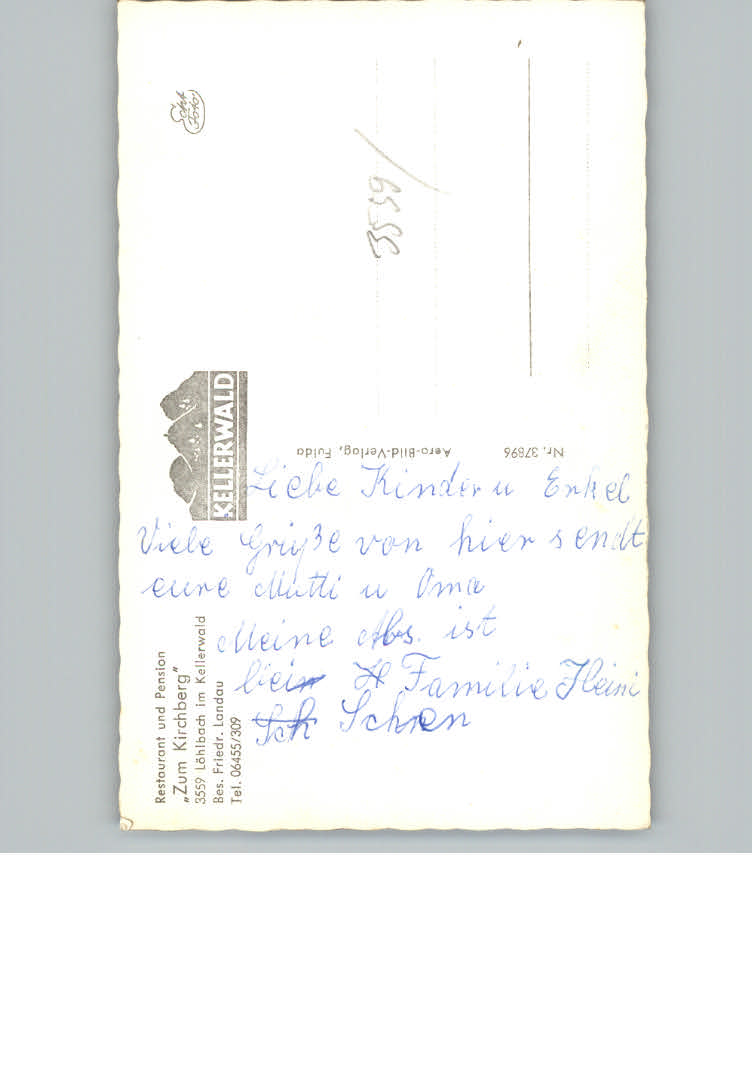 Restaurant und Pension
„Zum Kirchberg"
3559 Löhlbach im Kellerwald
Bes. Friedr. Landau
Tel. 06455/309
KELLERWALD
Echt
Foto
Aero-Bild-Verlag, Fulda
Nr. 37896
3559
Liebe Kinder u Enkel
Viele Grüße von hier sendt
eure Mutti u Oma
Meine Abs. ist
bein H Familie Heini
Sch Schren